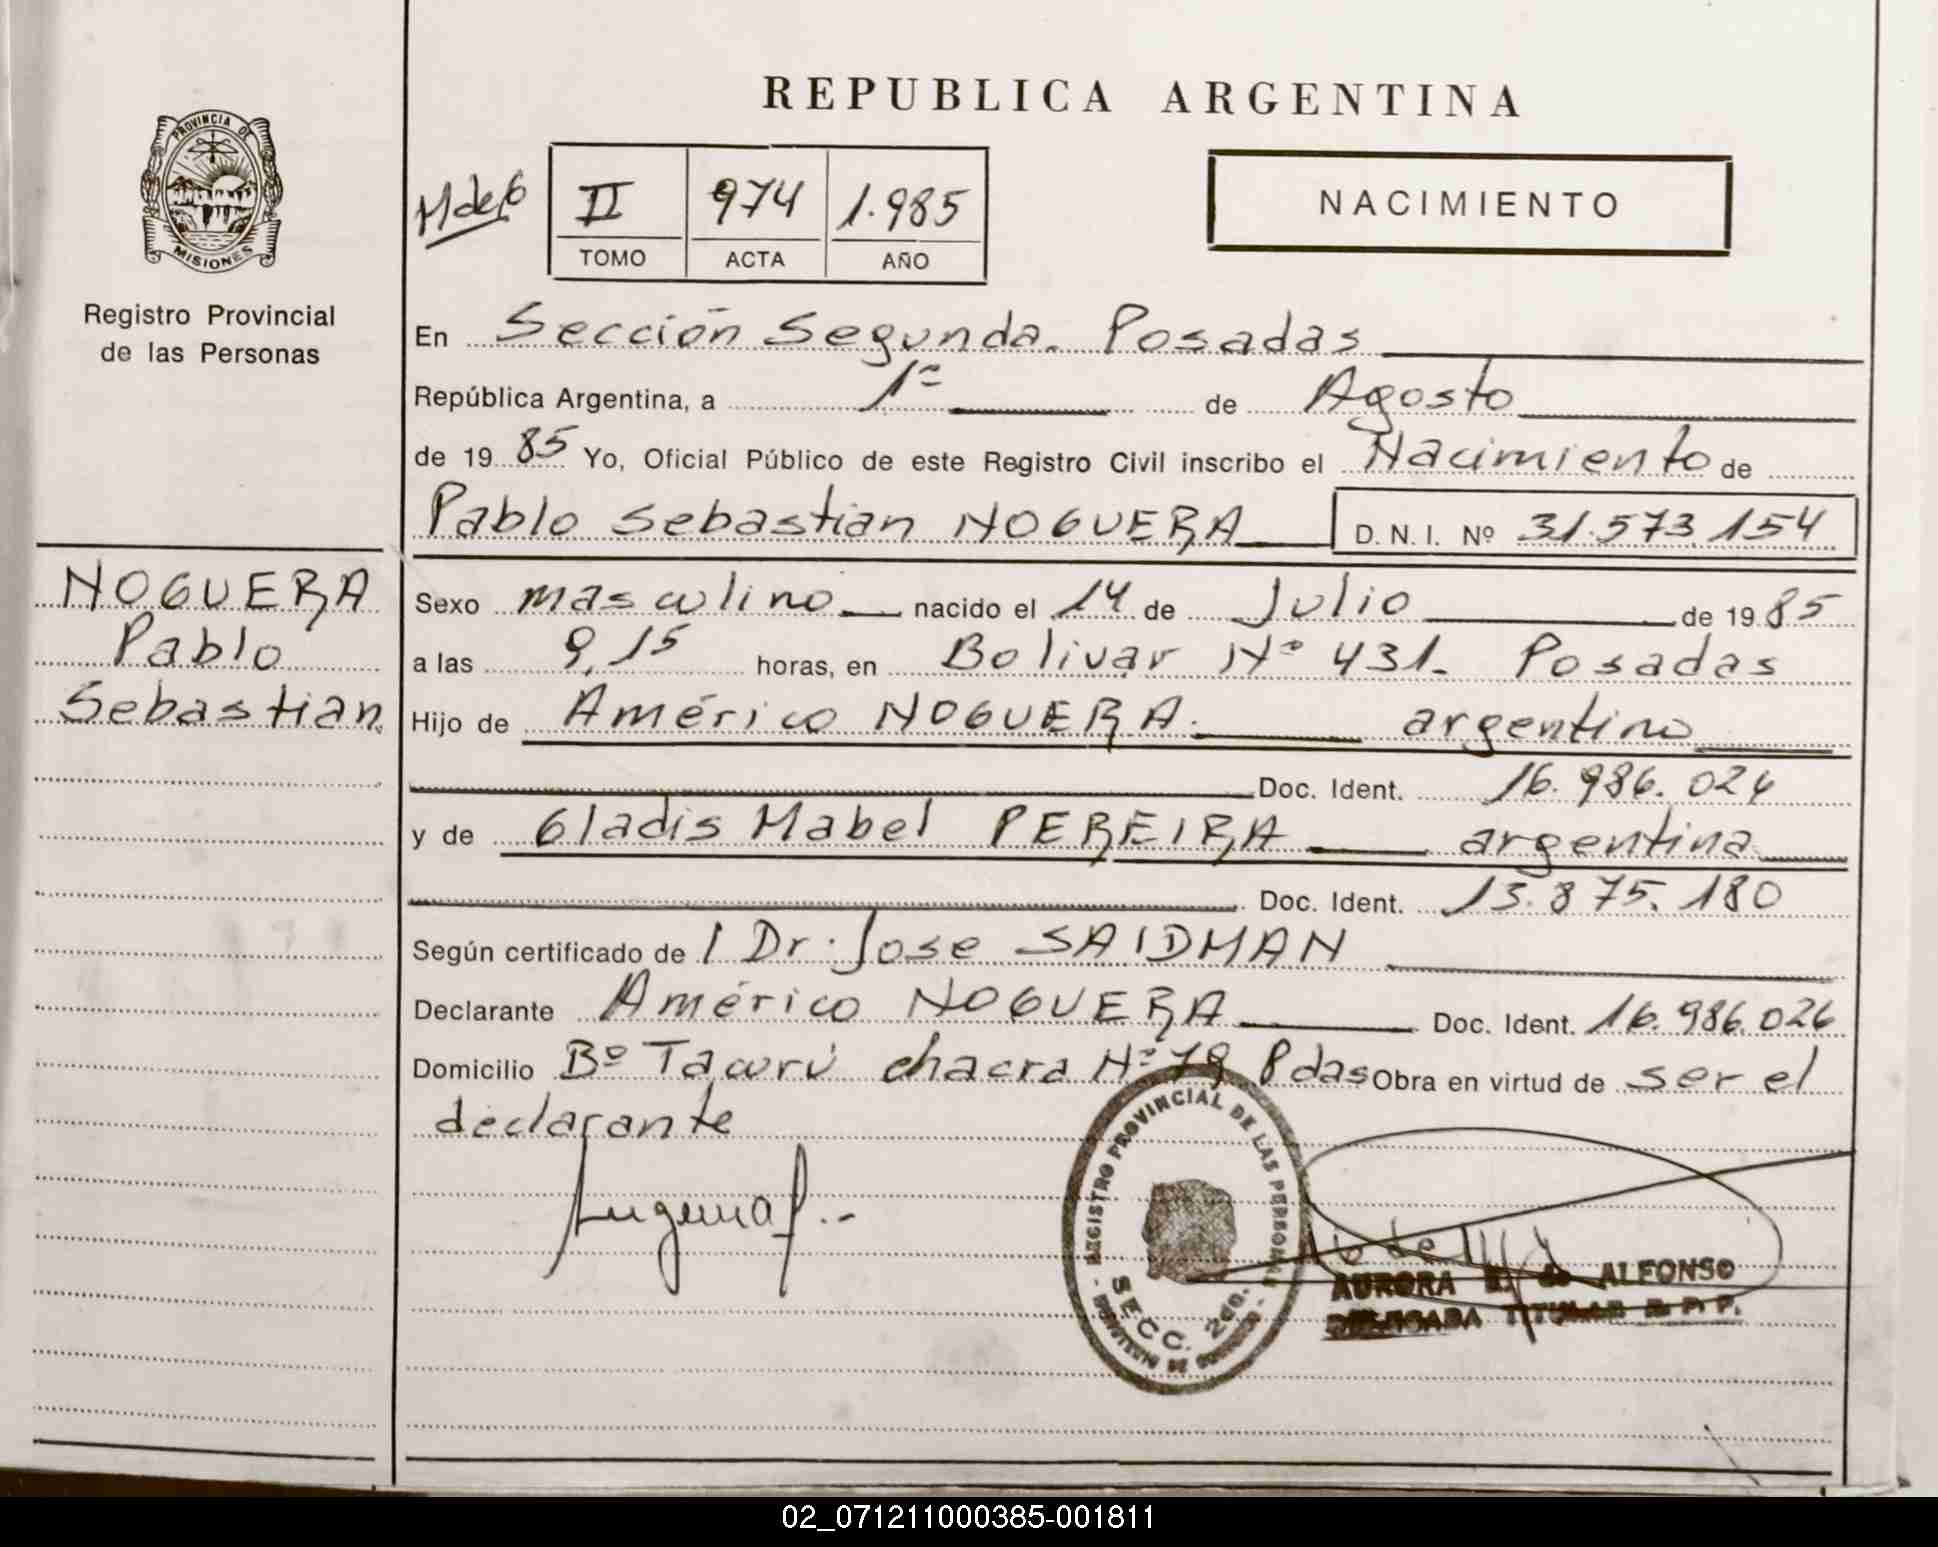 REPUBLICA ARGENTINA
PROVINCIA DE
MISIONES
Registro Provincial
de las Personas
II 974 1.985
TOMO ACTA AÑO
NACIMIENTO
En Sección Segunda. Posadas
República Argentina, a 1º de Agosto
de 19 85 Yo, Oficial Público de este Registro Civil inscribo el Nacimiento de
Pablo Sebastian NOGUERA D. N. I. Nº 31.573.154
NOGUERA
Pablo
Sebastian
Sexo masculino nacido el 14 de Julio de 19 85
a las 9,15 horas, en Bolivar Nº 431. Posadas
Hijo de Américo NOGUERA. argentino
Doc. Ident. 16.986.026
y de Gladis Mabel PEREIRA argentina
Doc. Ident. 13.875.180
Según certificado de l Dr. Jose SAIDMAN
Declarante Américo NOGUERA Doc. Ident. 16.986.026
Domicilio Bº Tacurú chacra Nº 79 Pdas Obra en virtud de ser el
declarante
REGISTRO PROVINCIAL DE LAS PERSONAS
SECC. 2da.
AURORA de ALFONSO
DELEGADA TITULAR R. P. P.
02_071211000385-001811